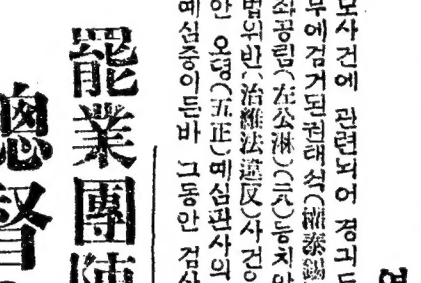 여
모사건에 관련되어 경긔도
무에검거된권태석(權泰錫
좌공림(左公淋)(三六)등치안
법위반(治維法違反)사건은
안 오뎡(五正)예심판사의
예심중이든바 그동안 검사
罷業團陳
總督